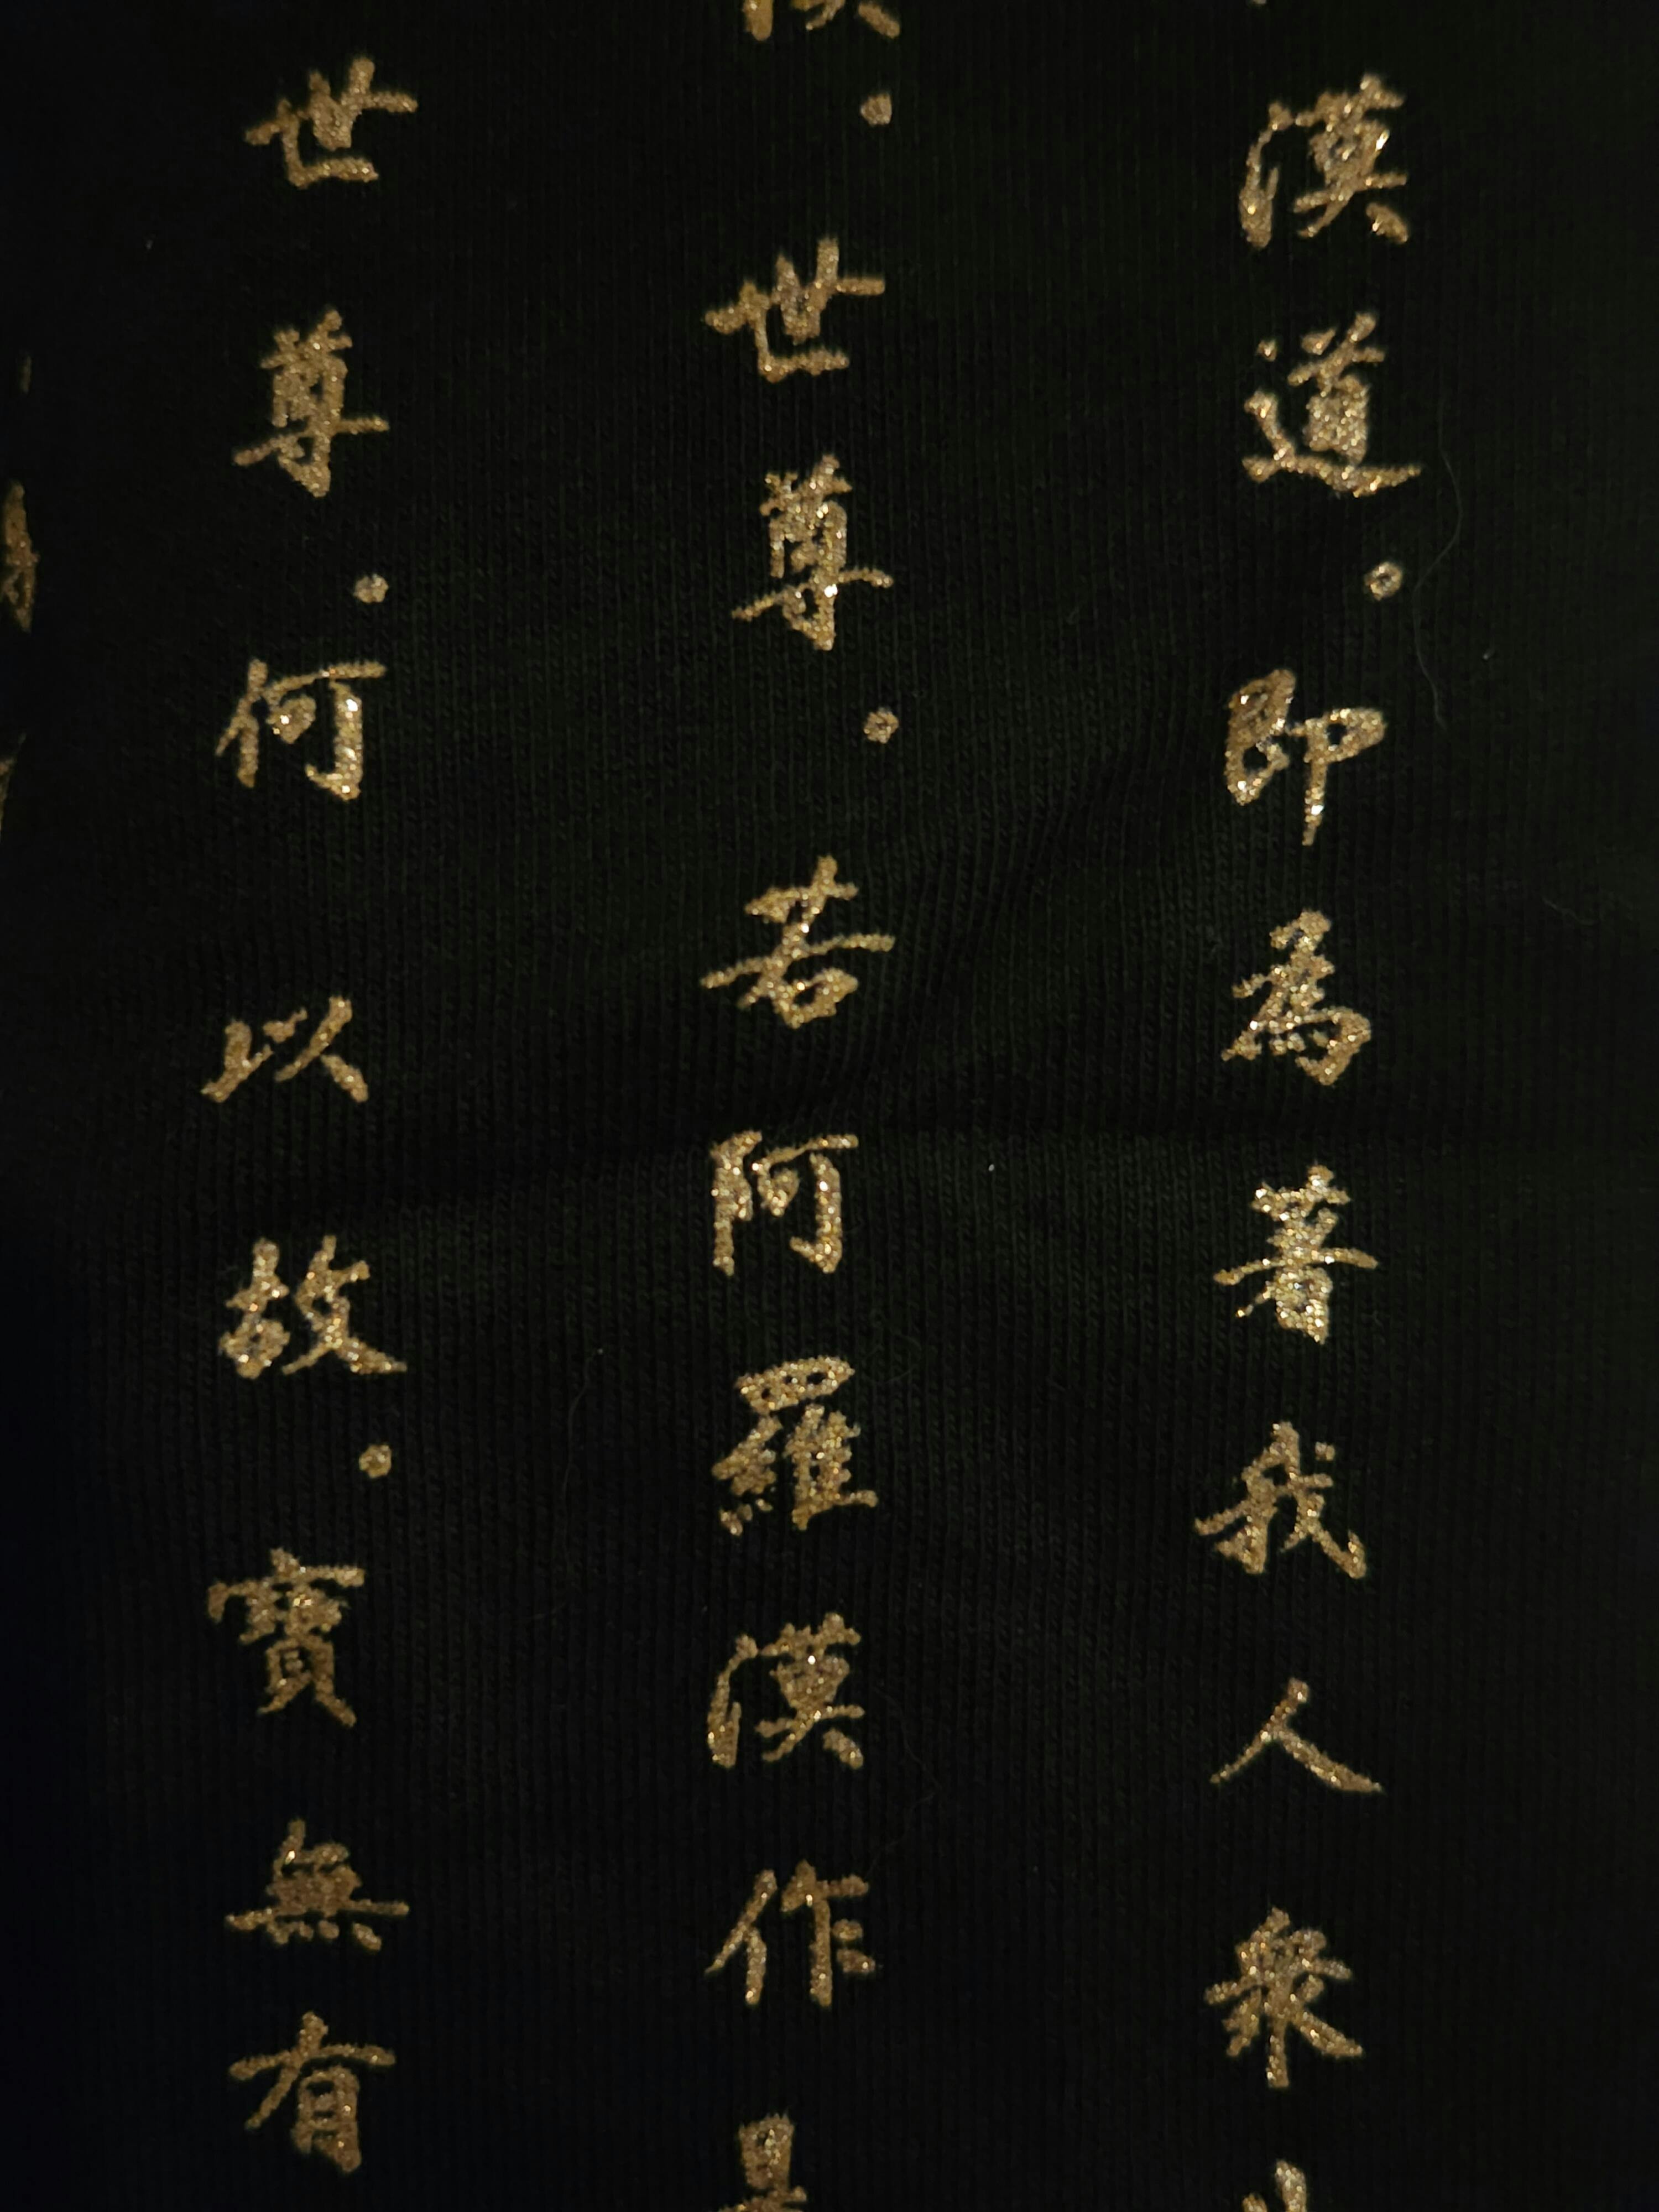 漢道。即為著我人衆
。世尊。若阿羅漢作
世尊。何以故。實無有